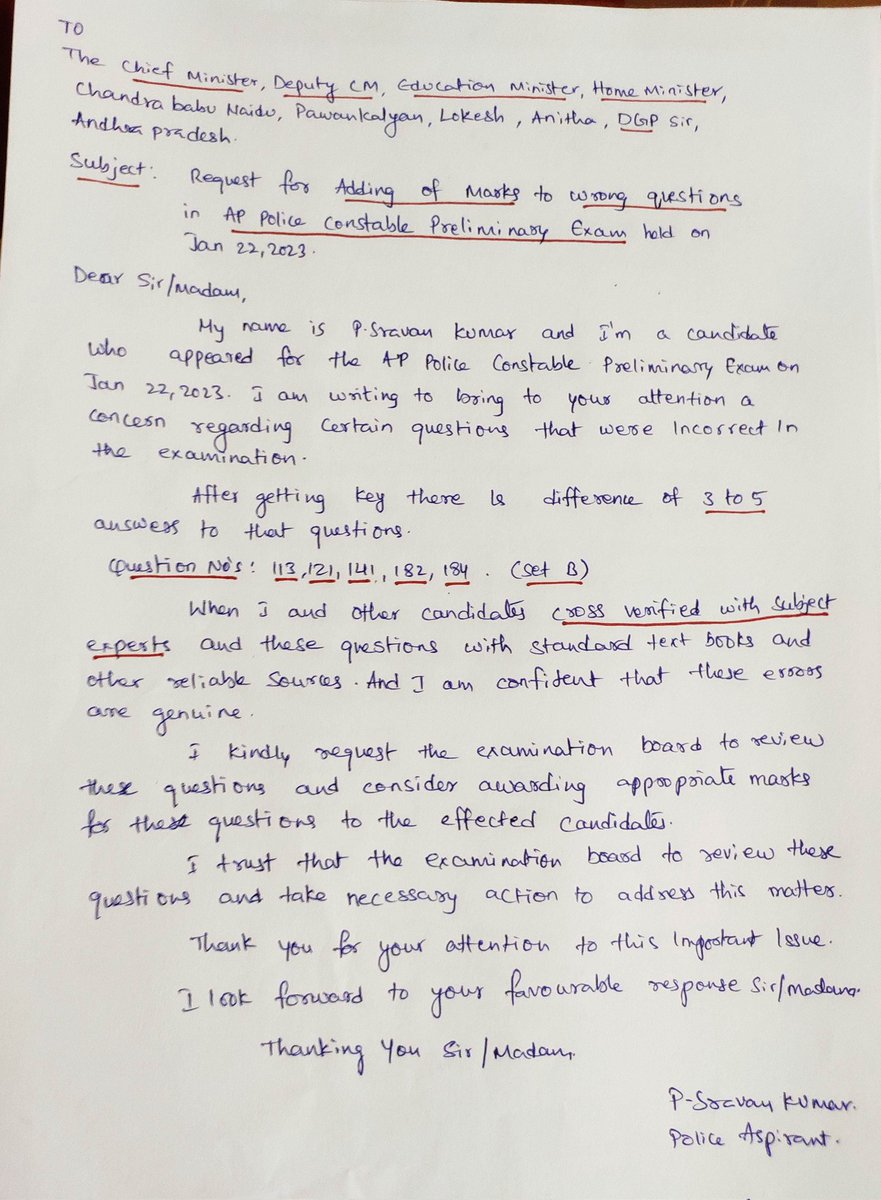 TO
The Chief Minister, Deputy CM, Education Minister, Home Minister,
Chandra babu Naidu, Pawankalyan, Lokesh, Anitha, DGP Sir,
Andhra pradesh.
Subject: Request for Adding of Marks to wrong questions
in AP Police Constable Preliminary Exam held on
Jan 22, 2023.
Dear Sir/Madam,
My name is P. Sravan Kumar and I'm a candidate
who appeared for the AP Police Constable Preliminary Exam on
Jan 22, 2023. I am writing to bring to your attention a
concern regarding certain questions that were Incorrect In
the examination.
After getting key there is difference of 3 to 5
answess to that questions.
Question No's: 113, 121, 141, 182, 184. (Set B)
When I and other candidates cross verified with subject
experts and these questions with standard text books and
other reliable sources. And I am confident that these errors
are genuine.
I kindly request the examination board to review
these questions and consider awarding appropriate marks
for these questions to the effected candidates.
I trust that the examination board to review these
questions and take necessary action to address this matter.
Thank you for your attention to this Important Issue.
I look forward to your favourable response Sir/madam.
Thanking You Sir/Madam.
P-Sravan Kumar.
Police Aspirant.